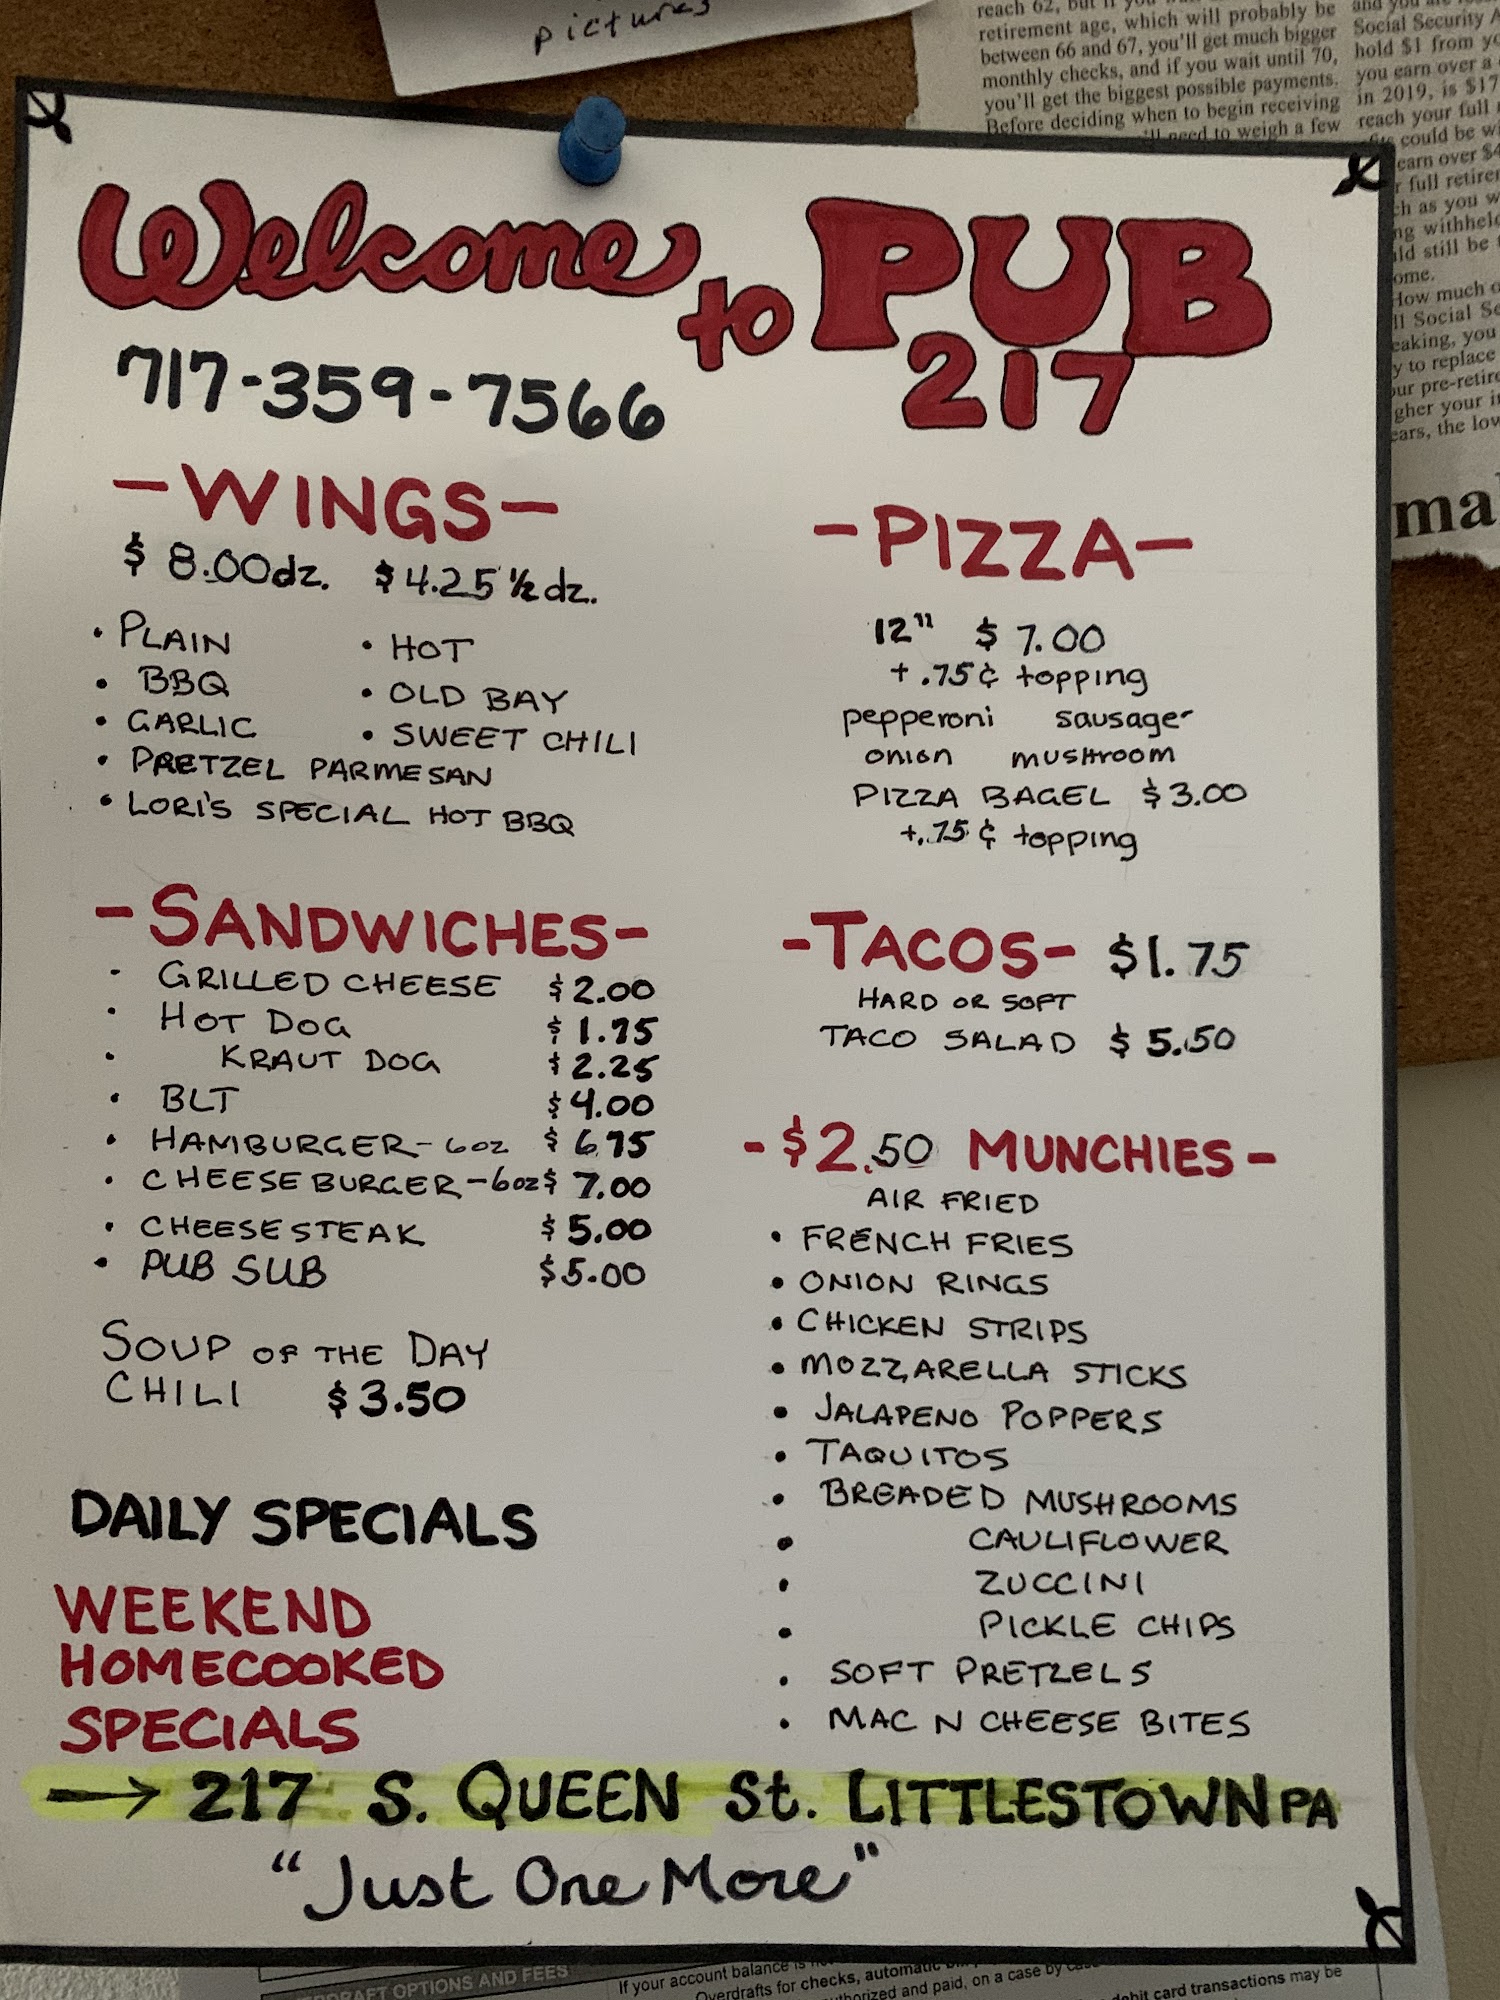 pictures
reach 62, but if you
retirement age, which will probably be
between 66 and 67, you'll get much bigger
monthly checks, and if you wait until 70,
you'll get the biggest possible payments.
Before deciding when to begin receiving
need to weigh a few
Social Security
hold $1 from
you earn over a
in 2019, is $17
reach your full
could be
earn over $4
full
as you
withheld
still be
How much
Social
you
to replace
pre-retire
your
the low
ma
Welcome to PUB
217
717-359-7566
-WINGS-
$ 8.00 dz. $4.25 ½ dz.
• PLAIN • HOT
• BBQ • OLD BAY
• GARLIC • SWEET CHILI
• PRETZEL PARMESAN
• LORI'S SPECIAL HOT BBQ
-PIZZA-
12" $ 7.00
+ .75¢ topping
pepperoni sausage
onion mushroom
PIZZA BAGEL $3.00
+.75¢ topping
-SANDWICHES-
• GRILLED CHEESE $2.00
• HOT DOG $1.75
• KRAUT DOG $2.25
• BLT $4.00
• HAMBURGER-6oz $6.75
• CHEESEBURGER-6oz $7.00
• CHEESESTEAK $5.00
• PUB SUB $5.00
SOUP OF THE DAY
CHILI $3.50
-TACOS- $1.75
HARD OR SOFT
TACO SALAD $5.50
-$2.50 MUNCHIES-
AIR FRIED
• FRENCH FRIES
• ONION RINGS
• CHICKEN STRIPS
• MOZZARELLA STICKS
• JALAPENO POPPERS
• TAQUITOS
• BREADED MUSHROOMS
• CAULIFLOWER
• ZUCCINI
• PICKLE CHIPS
• SOFT PRETZELS
• MAC N CHEESE BITES
DAILY SPECIALS
WEEKEND
HOMECOOKED
SPECIALS
→ 217 S. QUEEN St. LITTLESTOWN PA
"Just One More"
OPTIONS AND FEES
If your account balance is
Overdrafts for checks, automatic
and paid, on a case by
card transactions may be